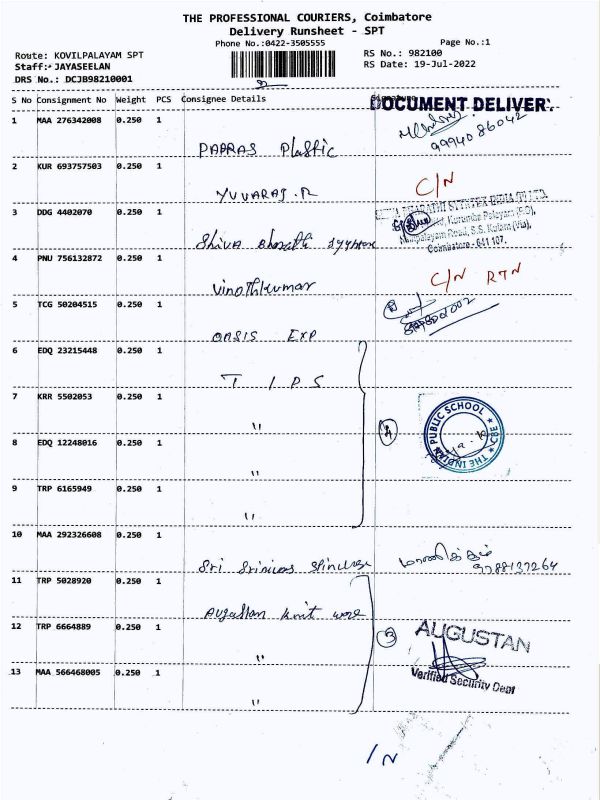 THE PROFESSIONAL COURIERS, Coimbatore
Delivery Runsheet - SPT
Phone No.:0422-3505555
Page No.:1
Route: KOVILPALAYAM SPT
RS No.: 982100
Staff: JAYASEELAN
RS Date: 19-Jul-2022
DRS No.: DCJB98210001
S No Consignment No Weight PCS Consignee Details
DOCUMENT DELIVERY
1 MAA 276342008 0.250 1
9994086042
Plastic
2 KUR 693757503 0.250 1
C/N
YUVARAJ.R
3 DDG 4402070 0.250 1
Shiva Bharathi
Coimbatore - 641 107.
4 PNU 756132872 0.250 1
Vinothkumar
C/N RTN
5 TCG 50204515 0.250 1
OASIS EXP
6 EDQ 23215448 0.250 1
T I P S
7 KRR 5502053 0.250 1
"
4
THE INDIAN PUBLIC SCHOOL
CBE
8 EDQ 12248016 0.250 1
"
9 TRP 6165949 0.250 1
"
10 MAA 292326608 0.250 1
Sri Srinivas
9788137264
11 TRP 5028920 0.250 1
Augustan knit wear
12 TRP 6664889 0.250 1
"
3
AUGUSTAN
Verified Security Dept
13 MAA 566468005 0.250 1
"
/N